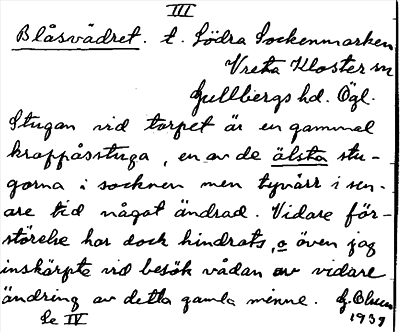 III
Blåsvädret. t. Södra Sockenmarken
Vreta Kloster sn
Gullbergs hd. Ögl.
Stugan vid torpet är en gammal
kroppåsstuga, en av de älsta stu-
gorna i socknen men tyvärr i sen-
are tid något ändrad. Vidare för-
störelse har dock hindrats, o även jag
inskärpte vid besök vådan av vidare
ändring av detta gamla minne.
Se IV 1939